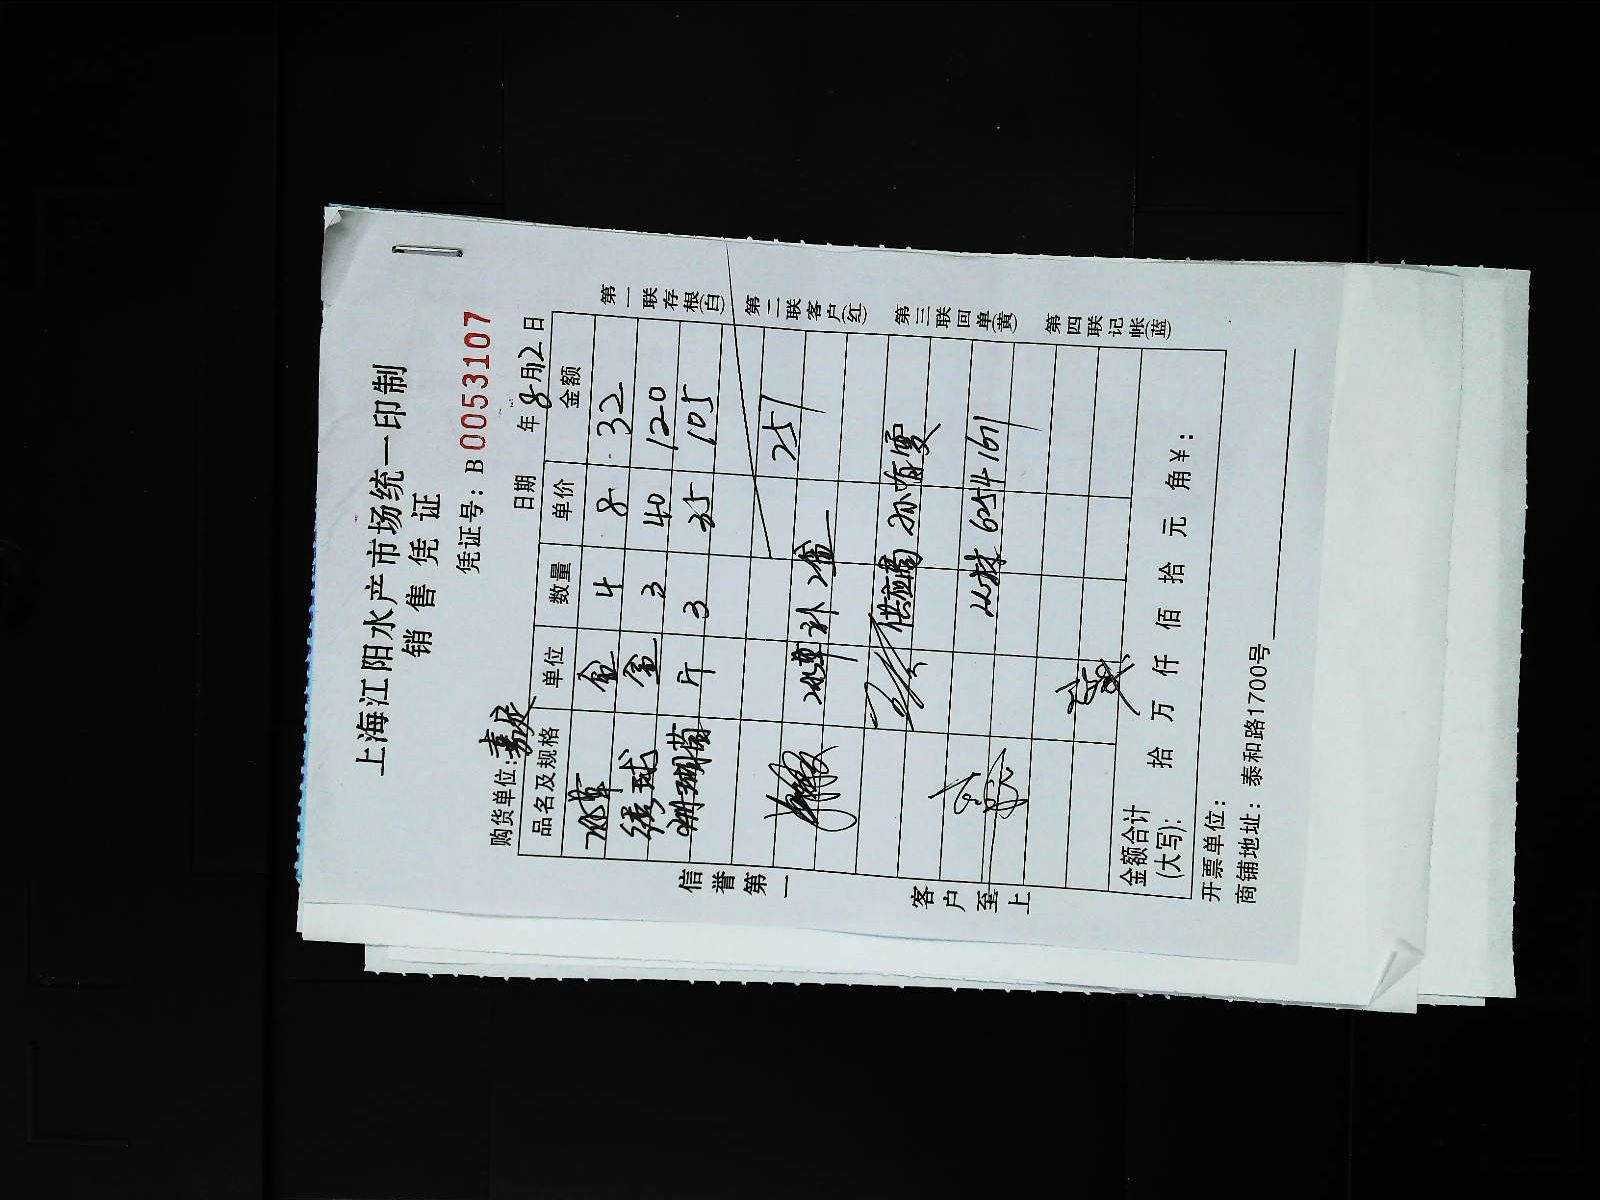 上海江阳水产市场统一印制
销售凭证
凭证号：B0053107
购货单位： 日期 年8月12日
品名及规格 单位 数量 单价 金额
冰草 盒 4 8 32
盒 3 40 120
珊瑚菌 斤 3 35 105
257
冰草补2盒
供应商 孙有雯
62541671
金额合计(大写)： 拾 万 仟 佰 拾 元 角 ¥：
开票单位：
商铺地址：泰和路1700号
信誉第一
客户至上
第一联存根(白)
第二联客户(红)
第三联回单(黄)
第四联记帐(蓝)